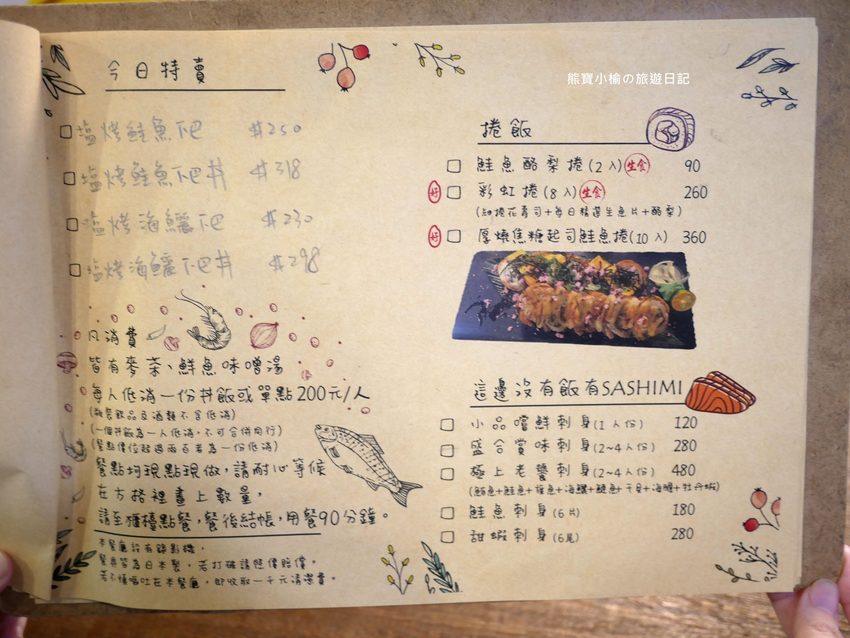 熊寶小榆の旅遊日記
今日特賣
塩烤鮭魚下巴 $250
塩烤鮭魚下巴丼 $318
塩烤海鱺下巴 $230
塩烤海鱺下巴丼 $298
凡消費
皆有麥茶、鮮魚味噌湯
每人低消一份丼飯或單點200元/人
(一個丼飯為一人低消,不可合併同行)
餐點均現點現做,請耐心等候
在方格裡畫上數量,
請至櫃檯點餐,餐後結帳,用餐90分鐘。
本餐廳設有錄影機,
餐具皆為日本製,若打破請照價賠償,
若不慎嘔吐在本餐廳,即收取一千元清潔費。
捲飯
鮭魚酪梨捲(2入) 生食 90
好 彩虹捲(8入) 生食 260
好 厚燒焦糖起司鮭魚捲(10入) 360
這邊沒有飯有SASHIMI
小品嚐鮮刺身(1人份) 120
盛合賞味刺身(2~4人份) 280
極上老饕刺身(2~4人份) 480
鮭魚刺身(6片) 180
甜蝦刺身(6尾) 280